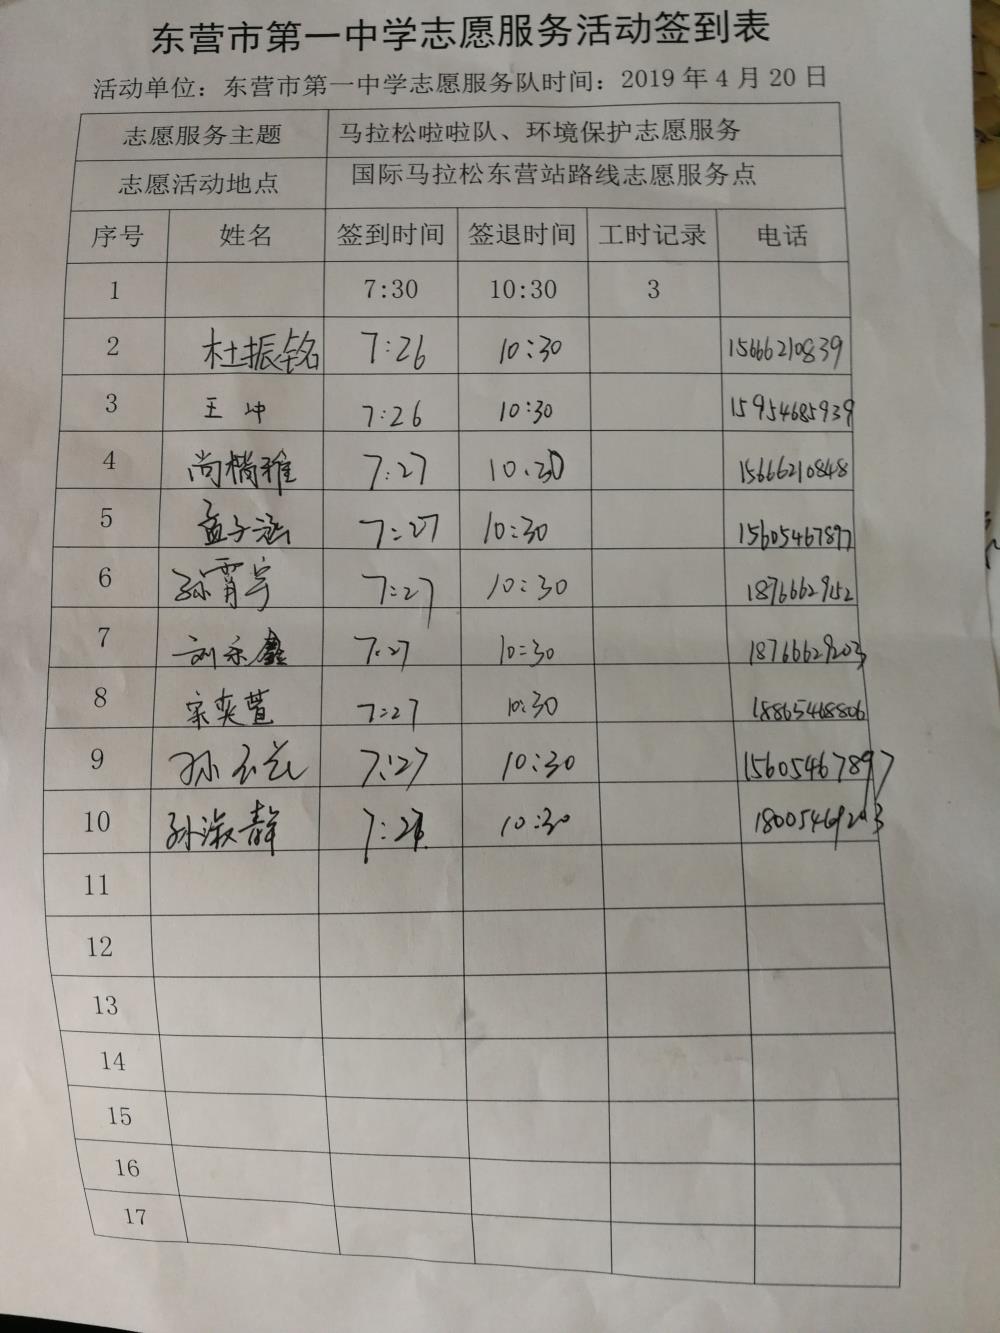 东营市第一中学志愿服务活动签到表
活动单位：东营市第一中学志愿服务队时间：2019 年 4 月 20 日
志愿服务主题 马拉松啦啦队、环境保护志愿服务
志愿活动地点 国际马拉松东营站路线志愿服务点
序号 姓名 签到时间 签退时间 工时记录 电话
1 7:30 10:30 3
2 杜振铭 7:26 10:30 15666210839
3 王冲 7:26 10:30 15954685939
4 尚楷雅 7:27 10:30 15666210848
5 孟子涵 7:27 10:30 15605467897
6 孙霄宇 7:27 10:30 18766629152
7 7:27 10:30 18766629203
8 宋奕萱 7:27 10:30 18865468806
9 7:27 10:30 15605467897
10 孙淑静 10:30 18005469203
11
12
13
14
15
16
17